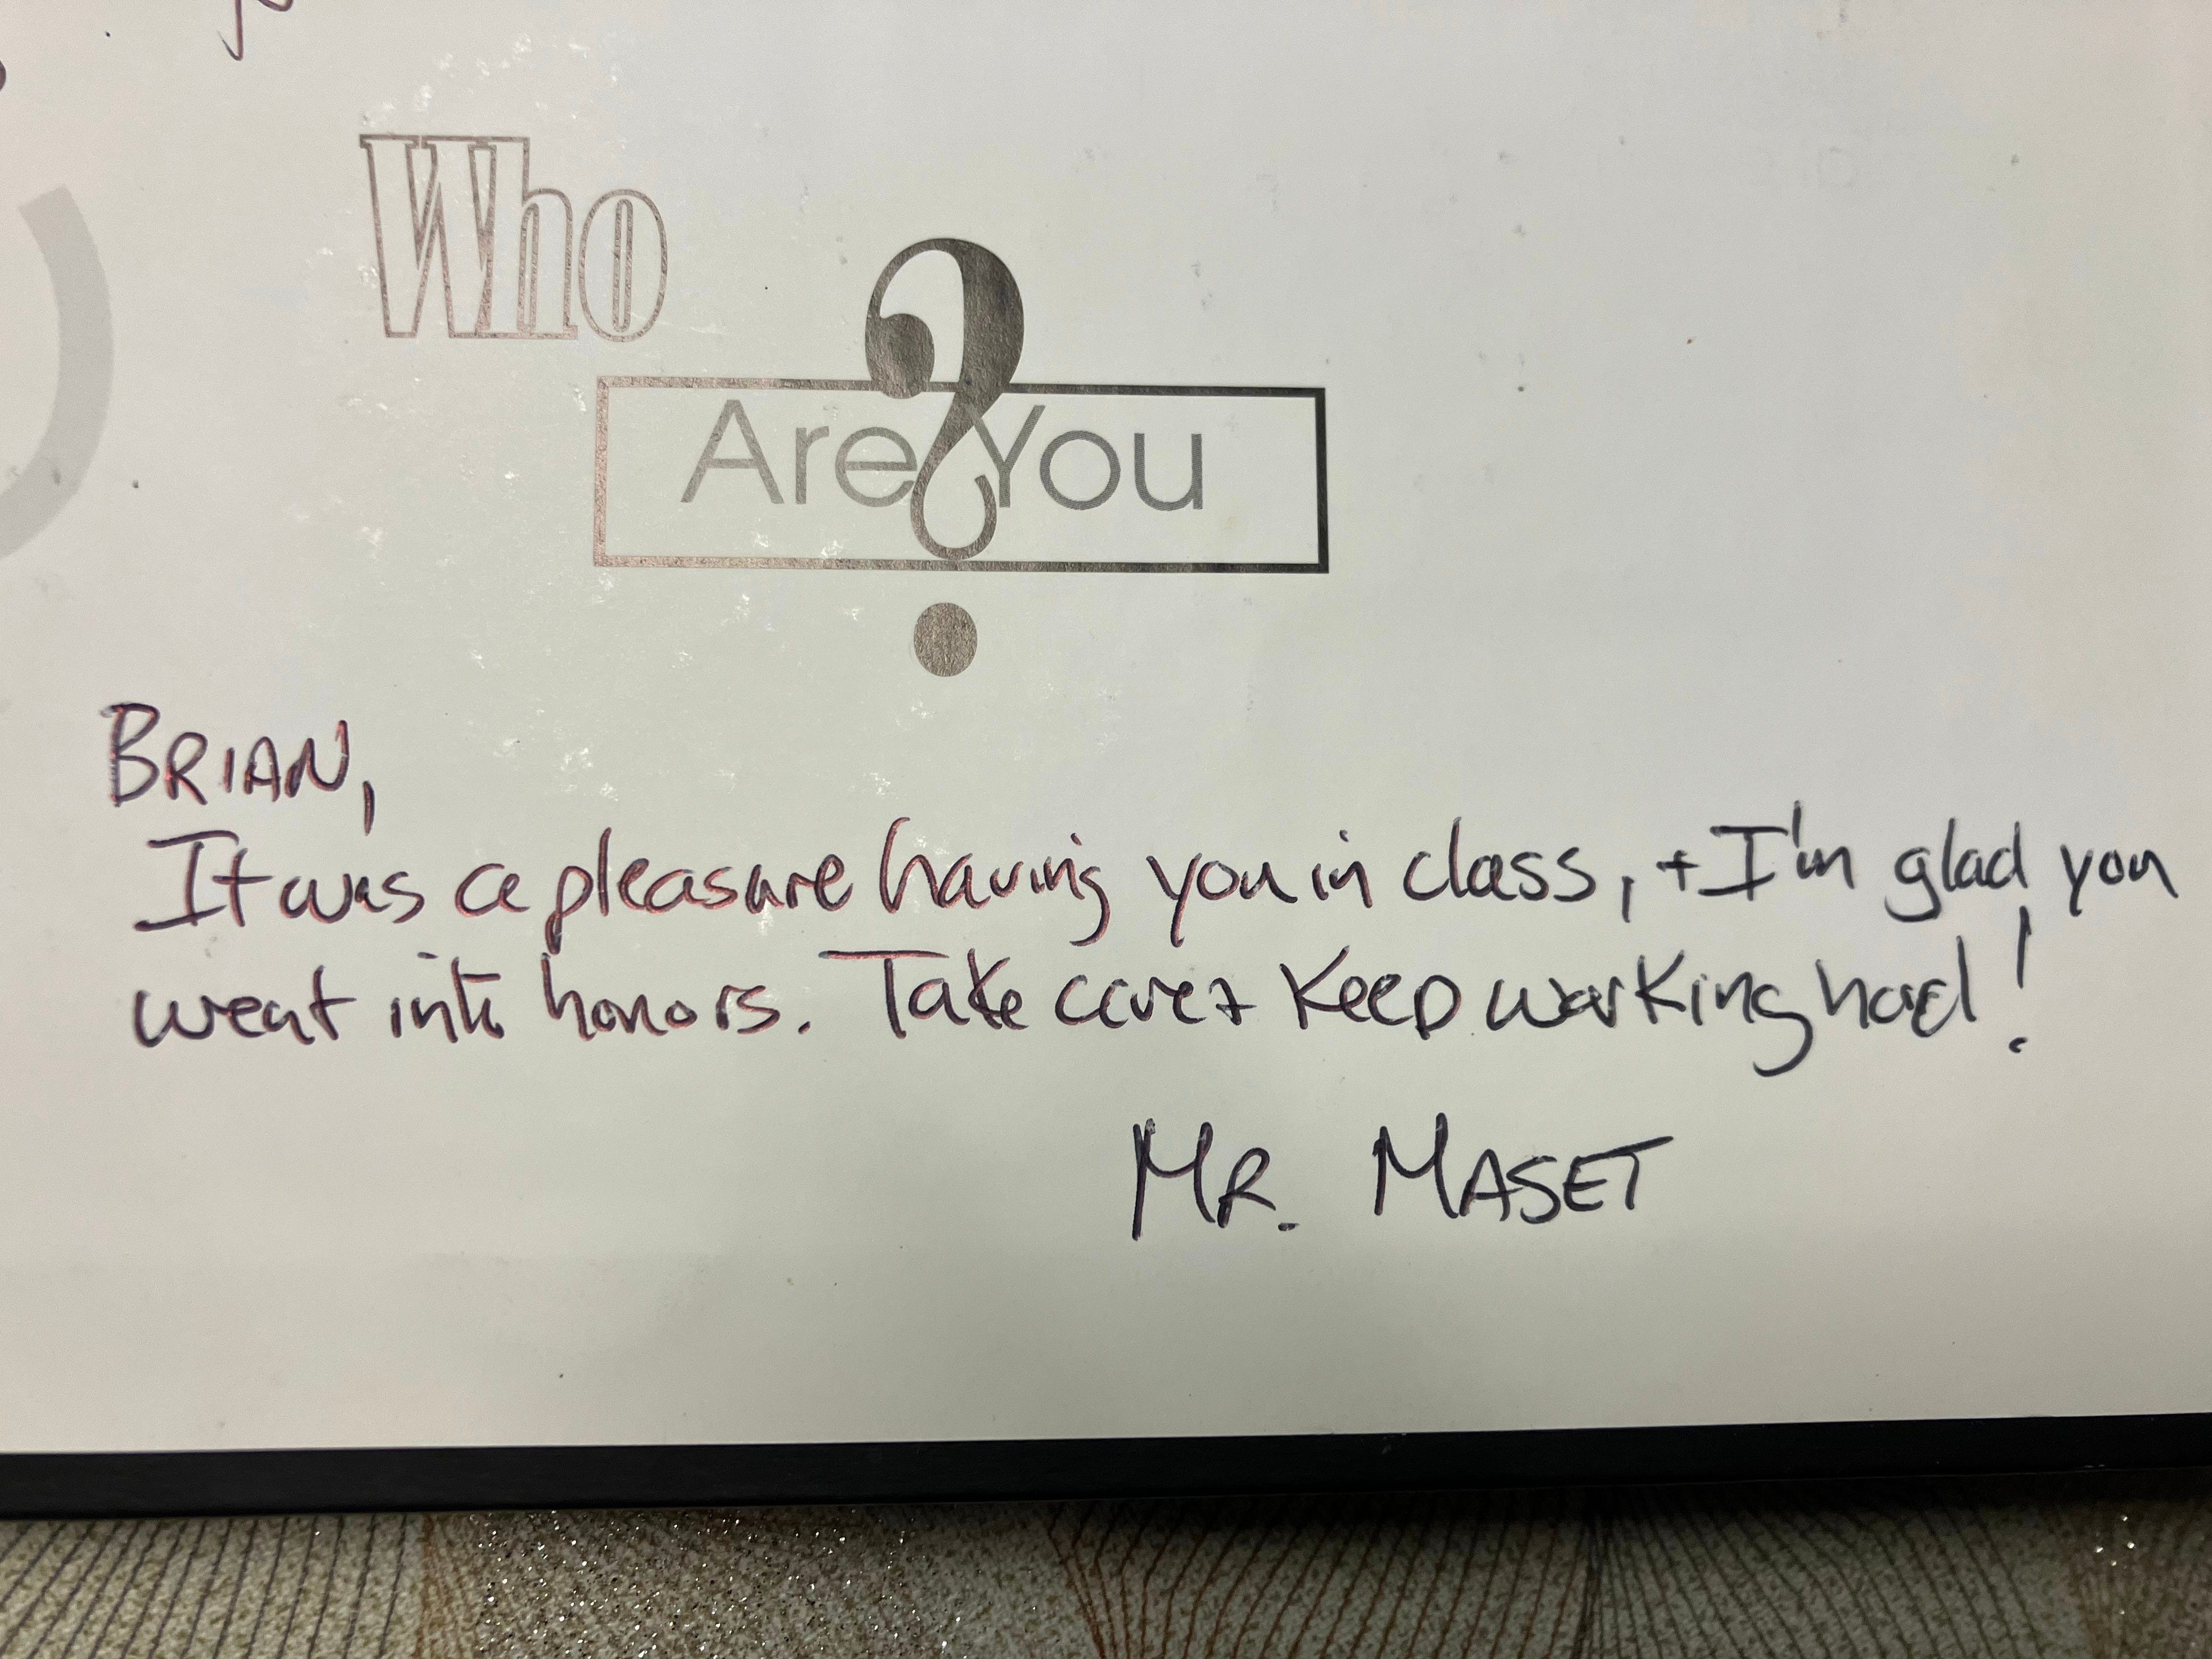 Who
Are You
?
BRIAN,
It was a pleasure having you in class, + I'm glad you
went into honors. Take care + Keep working hard!
MR. MASET